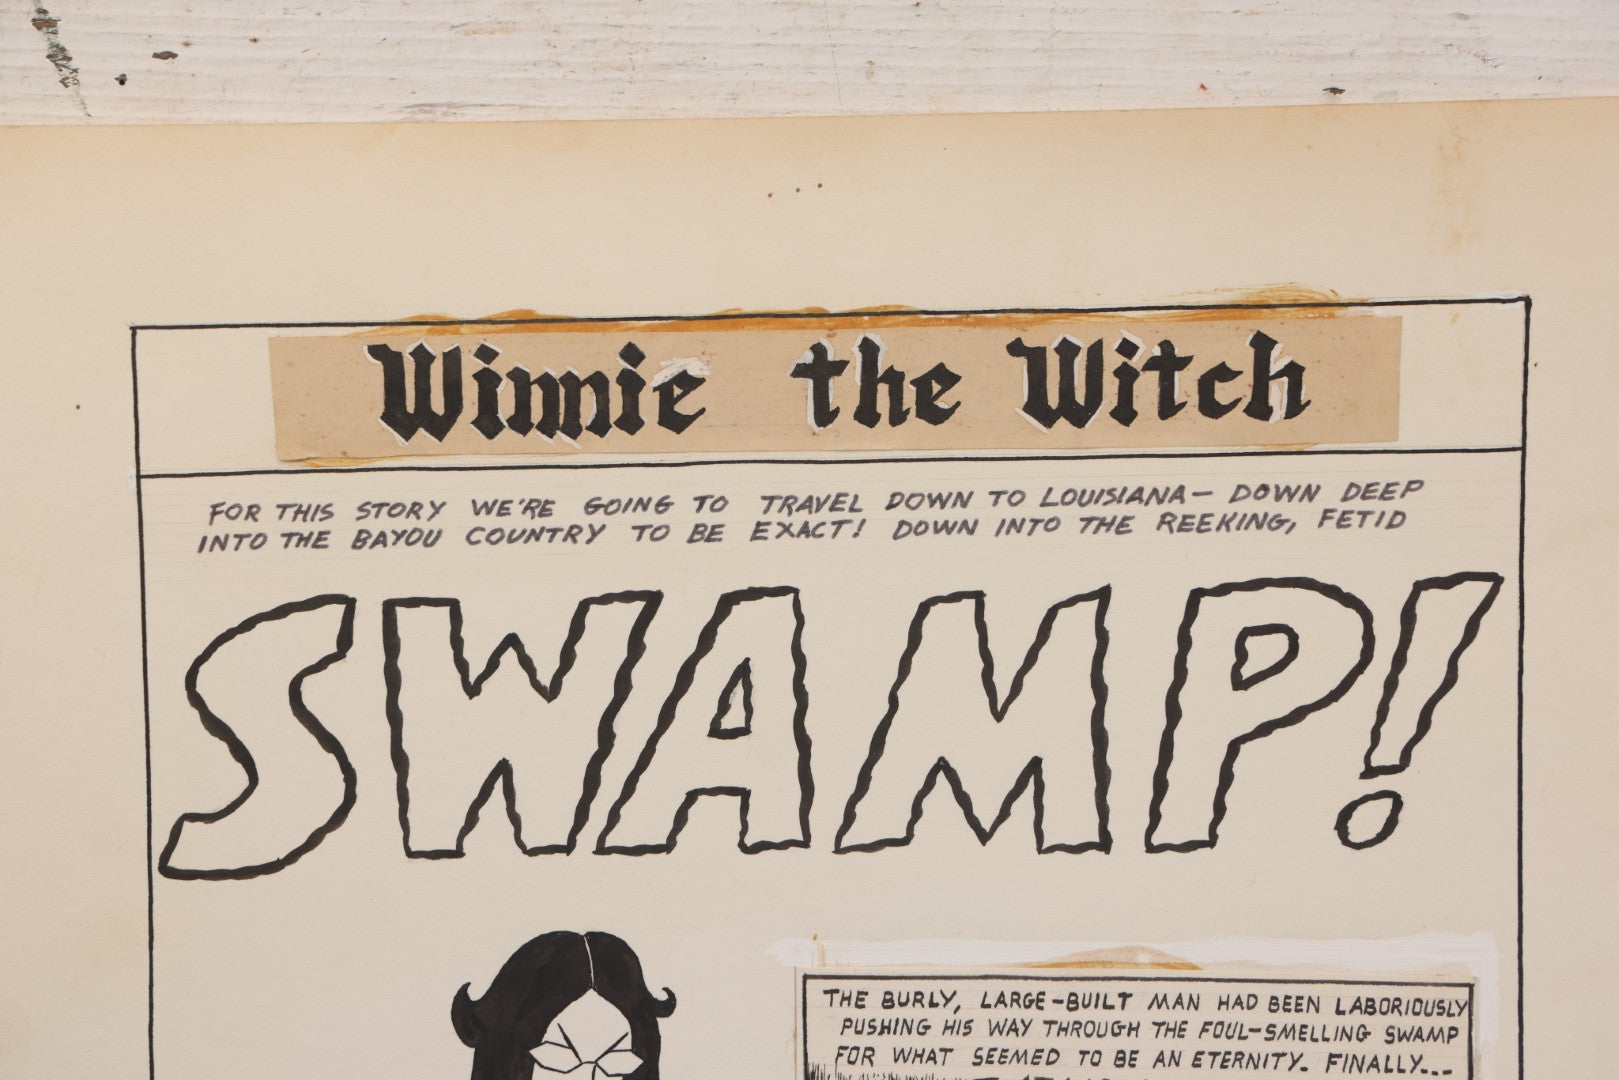 Winnie the Witch
FOR THIS STORY WE'RE GOING TO TRAVEL DOWN TO LOUISIANA— DOWN DEEP
INTO THE BAYOU COUNTRY TO BE EXACT! DOWN INTO THE REEKING, FETID
SWAMP!
THE BURLY, LARGE-BUILT MAN HAD BEEN LABORIOUSLY
PUSHING HIS WAY THROUGH THE FOUL-SMELLING SWAMP
FOR WHAT SEEMED TO BE AN ETERNITY. FINALLY...